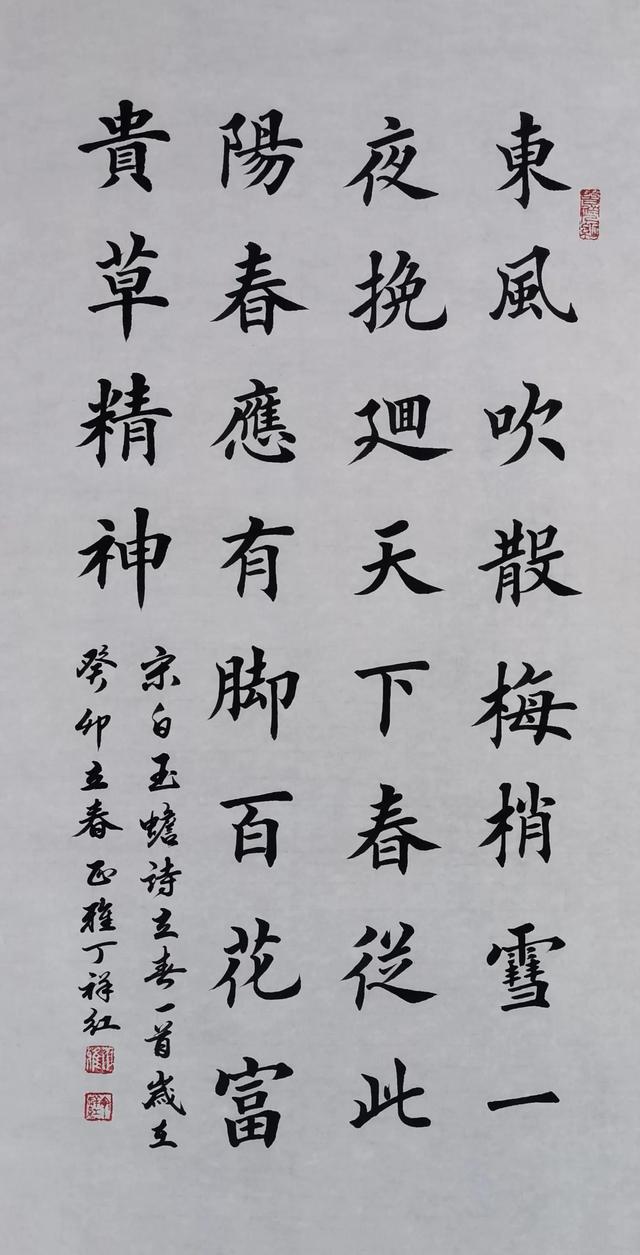 東風吹散梅梢雪一
夜挽廻天下春從此
陽春應有脚百花富
貴草精神
宋白玉蟾詩立春一首歲在
癸卯立春正雅丁祥紅